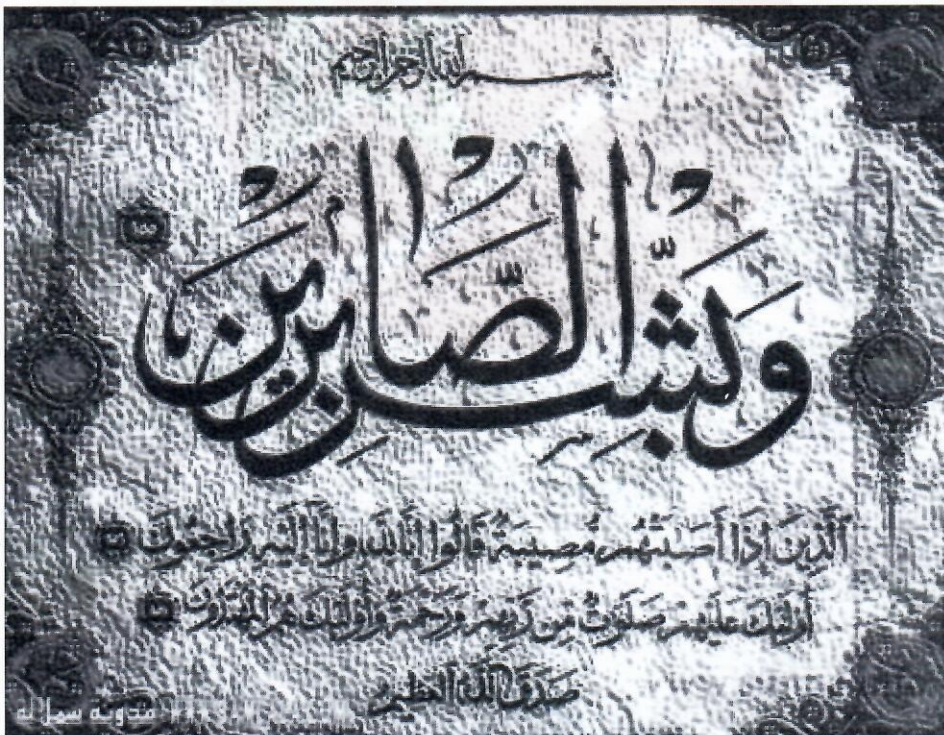 بسم الله الرحمن الرحيم
وَبَشِّرِ الصَّابِرِينَ
الَّذِينَ إِذَا أَصَـٰبَتْهُم مُّصِيبَةٌ قَالُوا إِنَّا لِلَّهِ وَإِنَّا إِلَيْهِ رَاجِعُونَ
أُولَـٰئِكَ عَلَيْهِمْ صَلَوَٰتٌ مِّن رَّبِّهِمْ وَرَحْمَةٌ وَأُولَـٰئِكَ هُمُ الْمُهْتَدُونَ
صَدَقَ اللَّهُ الْعَظِيمُ
مدونة سملاله